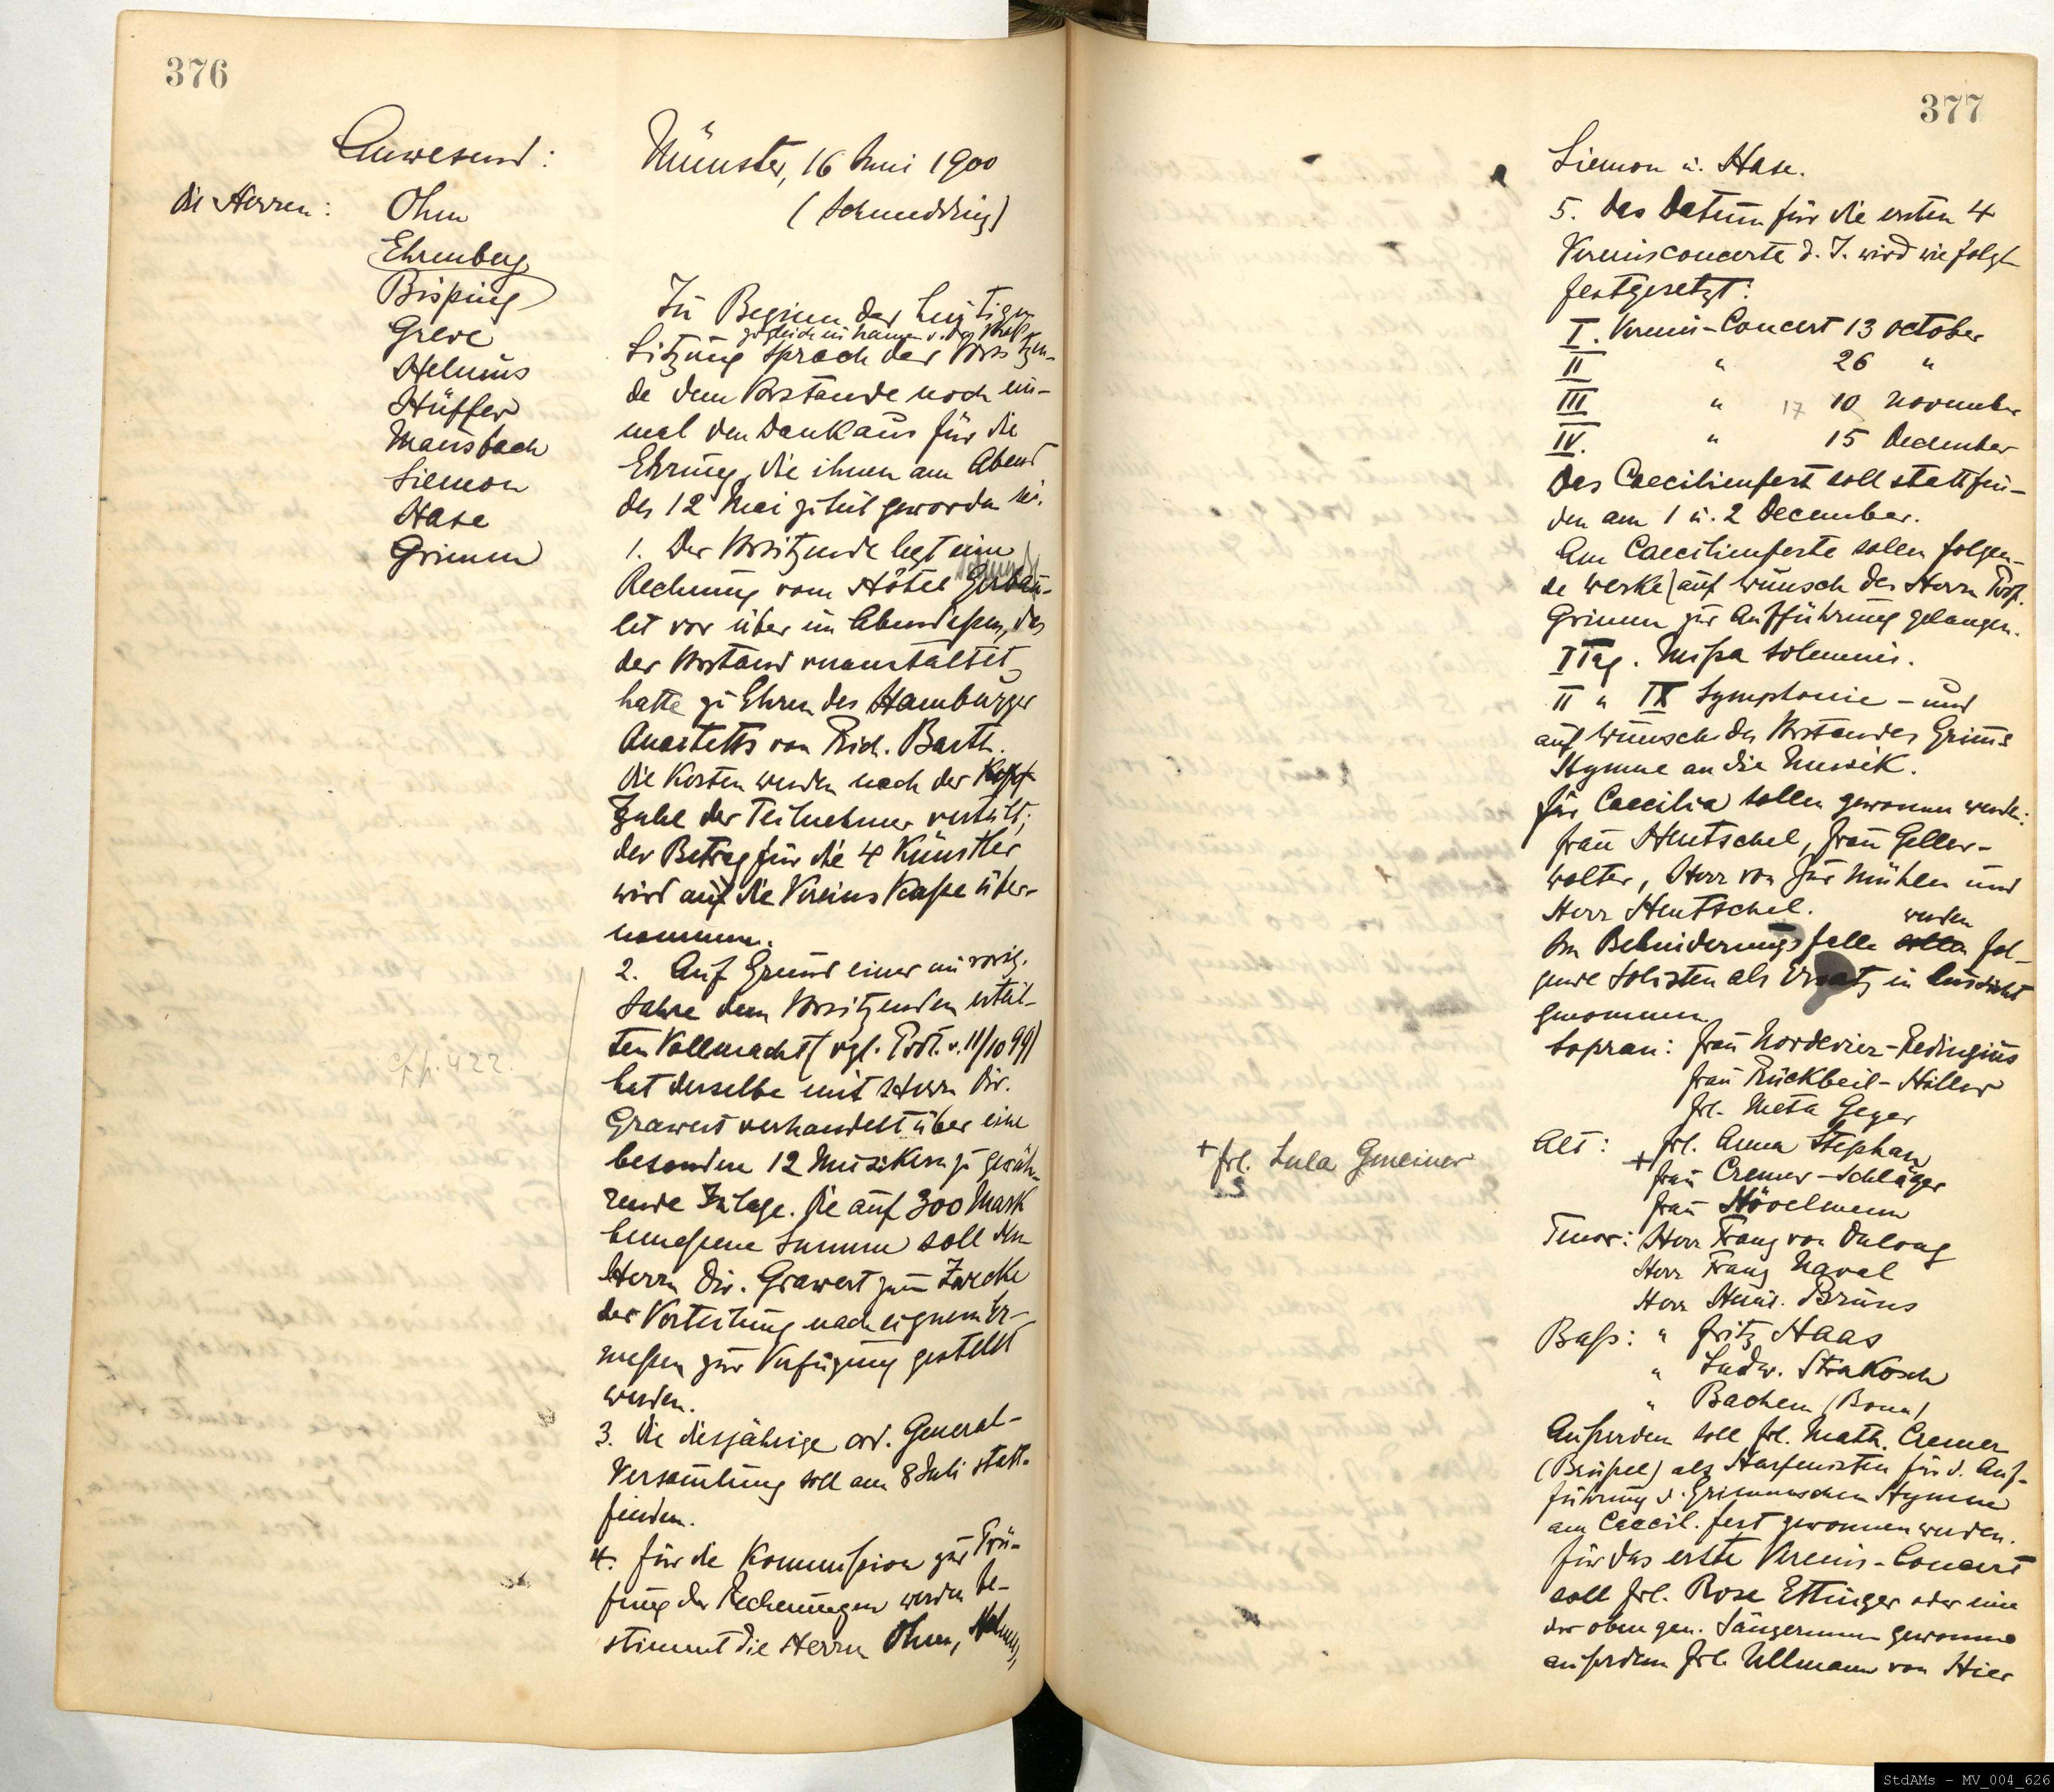 376
Anwesend:
die Herren:
Ohm
Ehrenberg
Bisping
Greve
Helmus
Hüffer
Mausbach
Siemon
Hase
Grimm
Münster, 16 Juni 1900
(Schmedding)
Zu Beginn der heutigen
zugleich im Namen v. Prof.
Sitzung sprach der Vorsitzen-
de dem Vorstande noch ein-
mal den Dank aus für die
Ehrung, die ihnen am Abend
des 12 Mai zuteil geworden sei.
1. Der Vorsitzende legt eine
Rechnung vom Hôtel Gerbau-
let vor über ein Abendessen, das
der Vorstand veranstaltet
hatte zu Ehren des Hamburger
Quartetts von Rich. Barth.
Die Kosten werden nach der Kopf-
zahl der Teilnehmer verteilt;
der Betrag für die 4 Künstler
wird auf die Vereins Kasse über-
nommen.
2. Auf Grund einer im vorig.
Jahre dem Vorsitzenden erteil-
ten Vollmacht (vgl. Prot. v. 11/10 99)
hat derselbe mit Herrn Dir.
Grawert verhandelt über eine
besondere 12 Musikern zu gewäh-
rende Zulage. Die auf 300 Mark
bemessene Summe soll dem
Herrn Dir. Grawert zum Zwecke
der Verteilung nach eignem Er-
messen zur Verfügung gestellt
werden.
cf p. 422.
3. Die diesjährige ord. General-
Versamlung soll am 8 Juli statt-
finden.
4. Für die Kommission zur Prü-
fung der Rechnungen werden be-
stimmt die Herrn Ohm, Helmus,
377
Siemon u. Hase.
5. Das Datum für die ersten 4
Vereinsconcerte d. J. wird wie folgt
festgesetzt:
I. Vereins-Concert 13 October
II " 26 "
III " 17 10 November
IV. " 15 December
Das Caecilienfest soll stattfin-
den am 1 u. 2 December.
Am Caecilienfeste sollen folgen-
de Werke auf Wunsch des Herrn Prof.
Grimm zur Aufführung gelangen.
I Tag. Missa Solemnis.
II " IX Symphonie - und
auf Wunsch des Vorstandes Grimms
Hymne an die Musik.
Für Caecilia sollen gewonnen werden:
Frau Hentschel, Frau Geller-
wolter, Herr von Zur Mühlen und
Herr Hentschel.
werden
Im Behinderungsfalle sollen fol-
gende Solisten als Ersatz in Aussicht
genommen
Sopran: Frau Nordevier-Redingius
Frau Rückbeil-Hiller
Frl. Meta Geyer
Alt: Frl. Anna Stephan
+ Frau Cremer-Schläger
+ Frl. Lula Gmeiner
Frau Hövelmann
Tenor: Herr Franz von Dulong
Herr Franz Naval
Herr Heinr. Bruns
Baß: " Fritz Haas
" Ludw. Strakosch
" Bachem (Bonn)
Außerdem soll Frl. Math. Cremer
(Brüssel) als Harfenistin für d. Auf-
führung d. Grimmschen Hymne
am Caecil. fest gewonnen werden.
Für das erste Vereins-Concert
soll Frl. Rose Ettinger oder eine
der oben gen. Sängerinnen gewonnen
außerdem Frl. Ullmann von Hier
StdAMs - MV_004_626